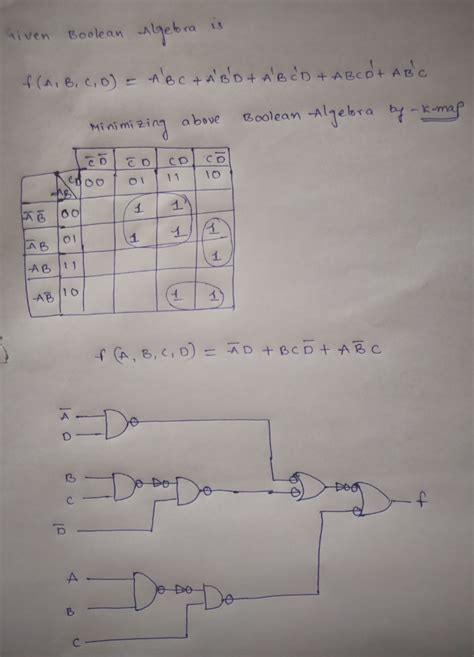 Given Boolean Algebra is
f(A, B, C, D) = A'BC + A'B'D + A'BC'D + ABCD' + AB'C
Minimizing above Boolean Algebra by - K-map
C̅D̅ C̅D CD CD̅
CD AB 00 01 11 10
A̅B̅ 00 1 1
A̅B 01 1 1 1
AB 11 1
AB̅ 10 1 1
f(A, B, C, D) = A̅D + BCD̅ + AB̅C
A̅
D
B
C
D̅
f
A
B
C